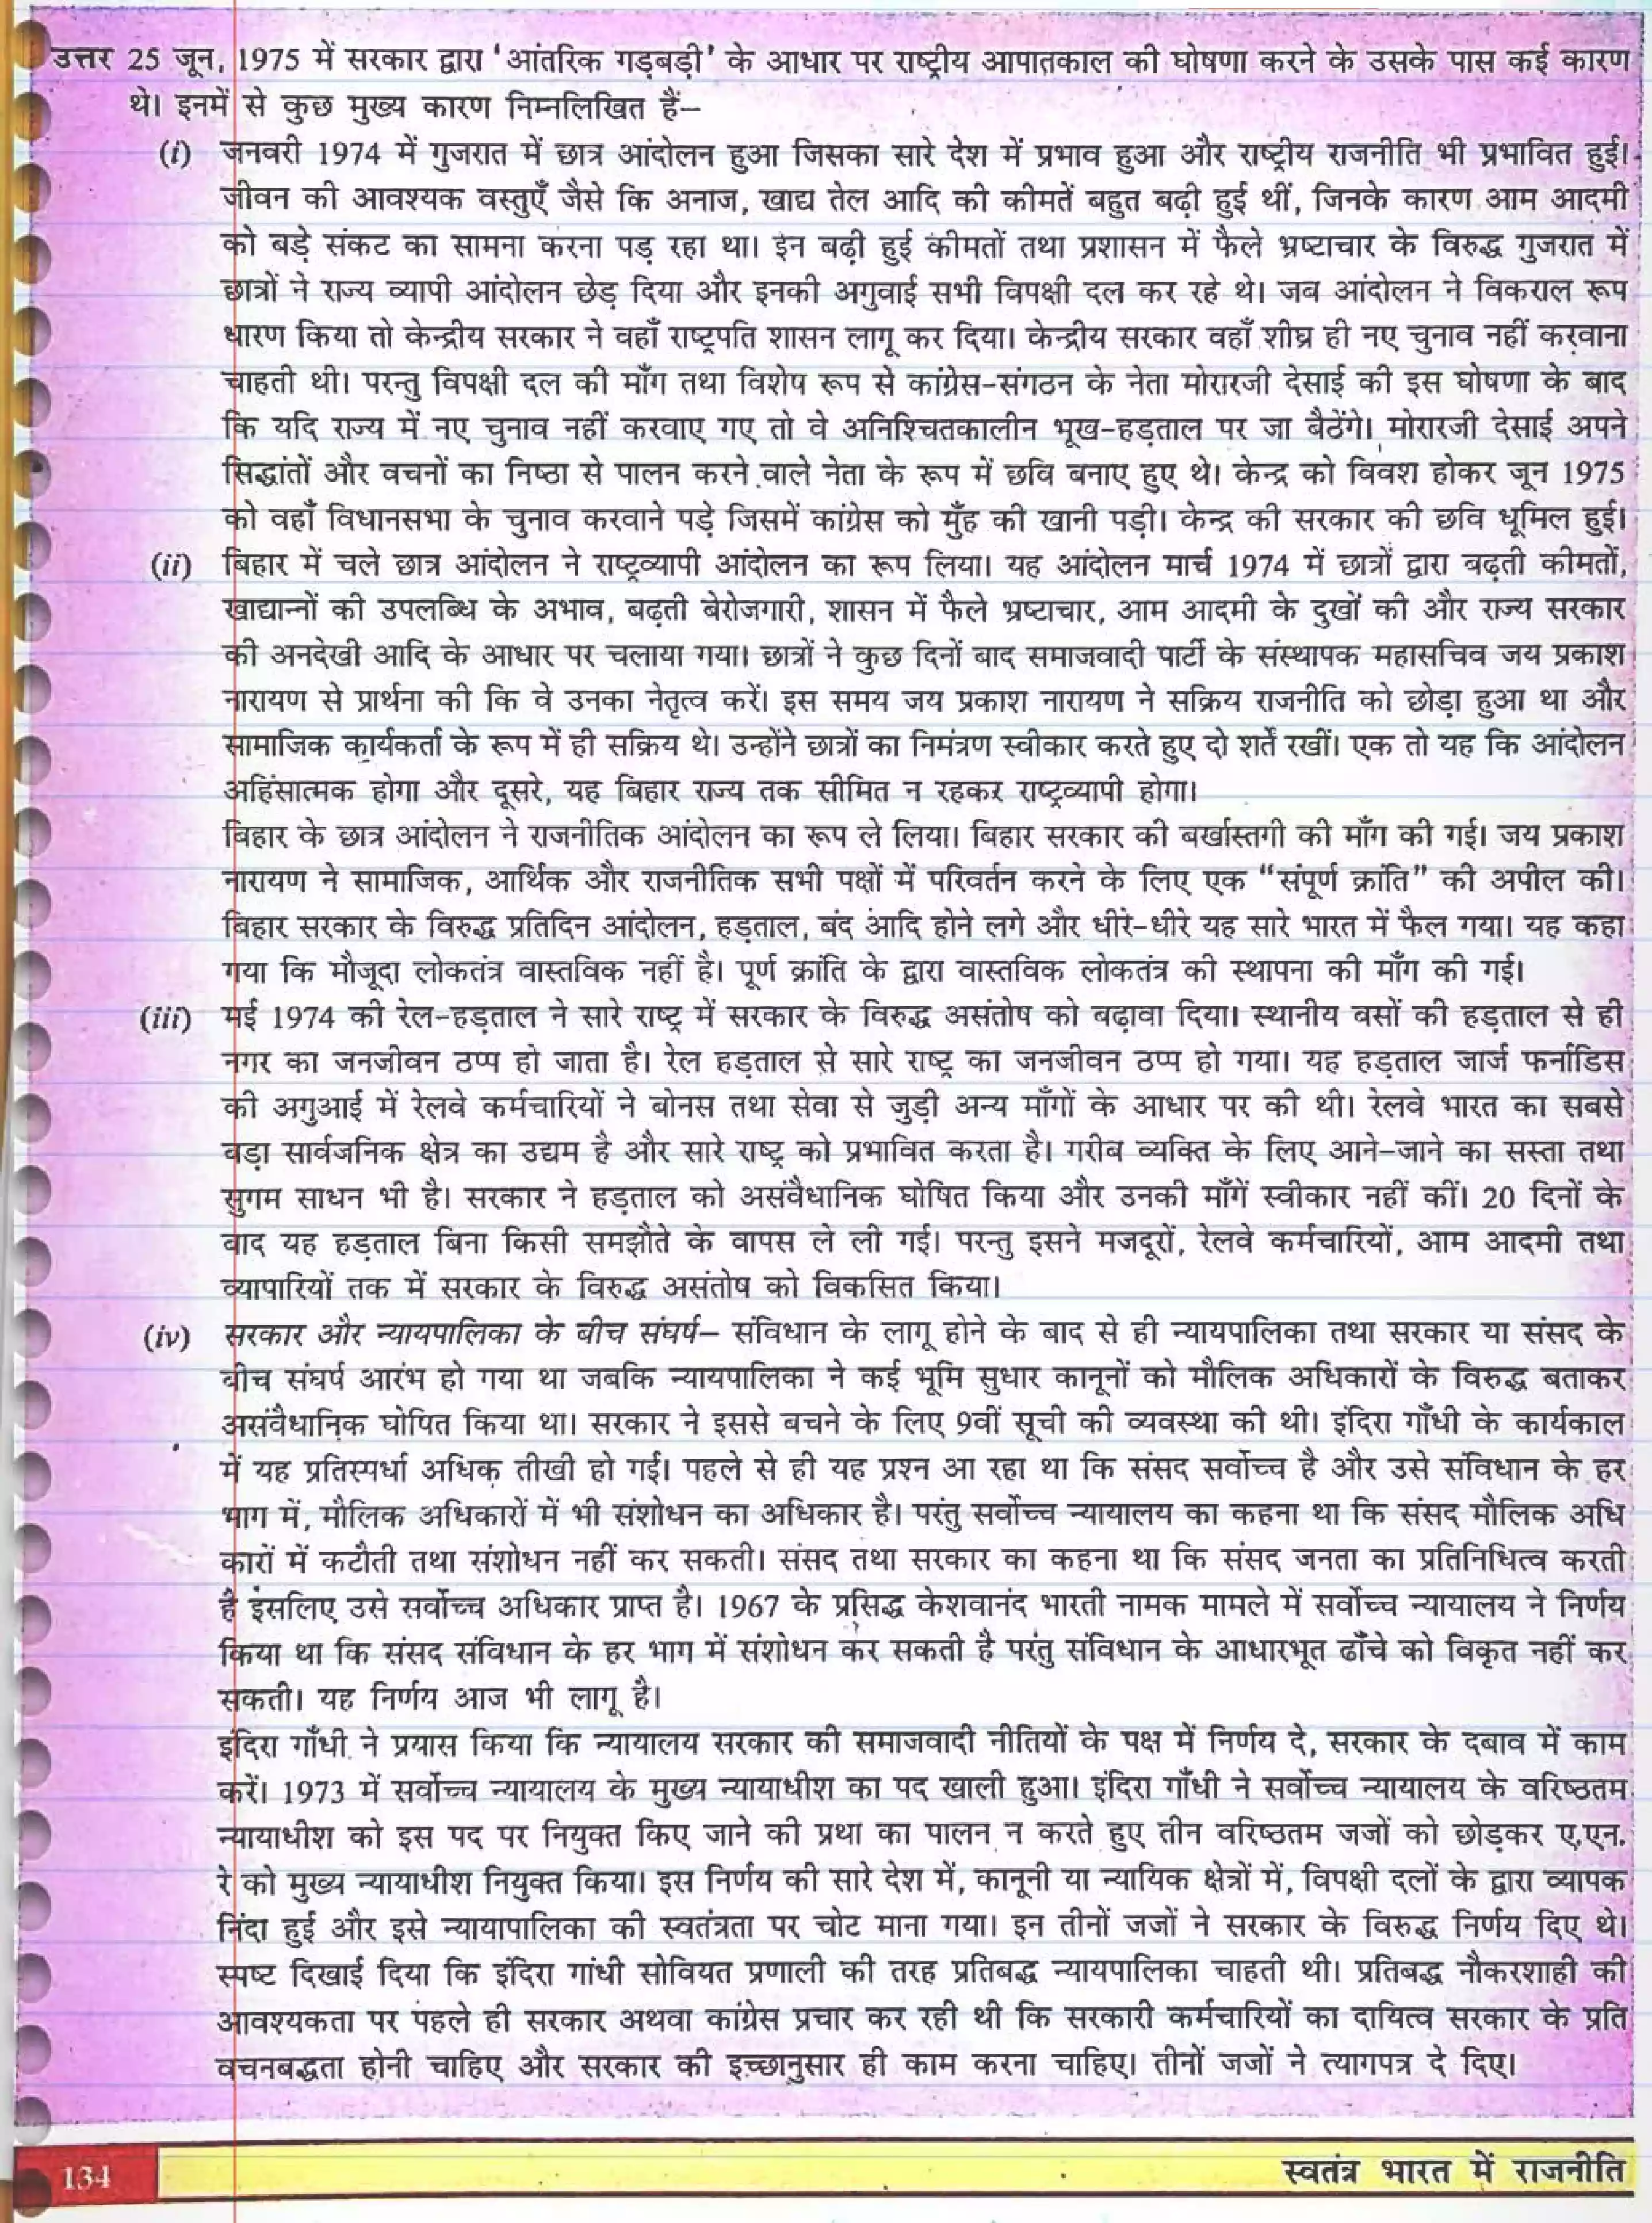 उत्तर 25 जून, 1975 में सरकार द्वारा 'आंतरिक गड़बड़ी' के आधार पर राष्ट्रीय आपातकाल की घोषणा करने के उसके पास कई कारण
थे। इनमें से कुछ मुख्य कारण निम्नलिखित हैं–
(i) जनवरी 1974 में गुजरात में छात्र आंदोलन हुआ जिसका सारे देश में प्रभाव हुआ और राष्ट्रीय राजनीति भी प्रभावित हुई।
जीवन की आवश्यक वस्तुएँ जैसे कि अनाज, खाद्य तेल आदि की कीमतें बहुत बढ़ी हुई थीं, जिनके कारण आम आदमी
को बड़े संकट का सामना करना पड़ रहा था। इन बढ़ी हुई कीमतों तथा प्रशासन में फैले भ्रष्टाचार के विरुद्ध गुजरात में
छात्रों ने राज्य व्यापी आंदोलन छेड़ दिया और इनकी अगुवाई सभी विपक्षी दल कर रहे थे। जब आंदोलन ने विकराल रूप
धारण किया तो केन्द्रीय सरकार ने वहाँ राष्ट्रपति शासन लागू कर दिया। केन्द्रीय सरकार वहाँ शीघ्र ही नए चुनाव नहीं करवाना
चाहती थी। परन्तु विपक्षी दल की माँग तथा विशेष रूप से कांग्रेस-संगठन के नेता मोरारजी देसाई की इस घोषणा के बाद
कि यदि राज्य में नए चुनाव नहीं करवाए गए तो वे अनिश्चितकालीन भूख-हड़ताल पर जा बैठेंगे। मोरारजी देसाई अपने
सिद्धांतों और वचनों का निष्ठा से पालन करने वाले नेता के रूप में छवि बनाए हुए थे। केन्द्र को विवश होकर जून 1975
को वहाँ विधानसभा के चुनाव करवाने पड़े जिसमें कांग्रेस को मुँह की खानी पड़ी। केन्द्र की सरकार की छवि धूमिल हुई।
(ii) बिहार में चले छात्र आंदोलन ने राष्ट्रव्यापी आंदोलन का रूप लिया। यह आंदोलन मार्च 1974 में छात्रों द्वारा बढ़ती कीमतों,
खाद्यान्नों की उपलब्धि के अभाव, बढ़ती बेरोजगारी, शासन में फैले भ्रष्टाचार, आम आदमी के दुखों की और राज्य सरकार
की अनदेखी आदि के आधार पर चलाया गया। छात्रों ने कुछ दिनों बाद समाजवादी पार्टी के संस्थापक महासचिव जय प्रकाश
नारायण से प्रार्थना की कि वे उनका नेतृत्व करें। इस समय जय प्रकाश नारायण ने सक्रिय राजनीति को छोड़ा हुआ था और
सामाजिक कार्यकर्ता के रूप में ही सक्रिय थे। उन्होंने छात्रों का निमंत्रण स्वीकार करते हुए दो शर्तें रखीं। एक तो यह कि आंदोलन
अहिंसात्मक होगा और दूसरे, यह बिहार राज्य तक सीमित न रहकर राष्ट्रव्यापी होगा।
बिहार के छात्र आंदोलन ने राजनीतिक आंदोलन का रूप ले लिया। बिहार सरकार की बर्खास्तगी की माँग की गई। जय प्रकाश
नारायण ने सामाजिक, आर्थिक और राजनीतिक सभी पक्षों में परिवर्तन करने के लिए एक “संपूर्ण क्रांति” की अपील की।
बिहार सरकार के विरुद्ध प्रतिदिन आंदोलन, हड़ताल, बंद आदि होने लगे और धीरे-धीरे यह सारे भारत में फैल गया। यह कहा
गया कि मौजूदा लोकतंत्र वास्तविक नहीं है। पूर्ण क्रांति के द्वारा वास्तविक लोकतंत्र की स्थापना की माँग की गई।
(iii) मई 1974 की रेल-हड़ताल ने सारे राष्ट्र में सरकार के विरुद्ध असंतोष को बढ़ावा दिया। स्थानीय बसों की हड़ताल से ही
नगर का जनजीवन ठप्प हो जाता है। रेल हड़ताल से सारे राष्ट्र का जनजीवन ठप्प हो गया। यह हड़ताल जार्ज फर्नांडिस
की अगुआई में रेलवे कर्मचारियों ने बोनस तथा सेवा से जुड़ी अन्य माँगों के आधार पर की थी। रेलवे भारत का सबसे
बड़ा सार्वजनिक क्षेत्र का उद्यम है और सारे राष्ट्र को प्रभावित करता है। गरीब व्यक्ति के लिए आने-जाने का सस्ता तथा
सुगम साधन भी है। सरकार ने हड़ताल को असंवैधानिक घोषित किया और उनकी माँगें स्वीकार नहीं कीं। 20 दिनों के
बाद यह हड़ताल बिना किसी समझौते के वापस ले ली गई। परन्तु इसने मजदूरों, रेलवे कर्मचारियों, आम आदमी तथा
व्यापारियों तक में सरकार के विरुद्ध असंतोष को विकसित किया।
(iv) सरकार और न्यायपालिका के बीच संघर्ष– संविधान के लागू होने के बाद से ही न्यायपालिका तथा सरकार या संसद के
बीच संघर्ष आरंभ हो गया था जबकि न्यायपालिका ने कई भूमि सुधार कानूनों को मौलिक अधिकारों के विरुद्ध बताकर
असंवैधानिक घोषित किया था। सरकार ने इससे बचने के लिए 9वीं सूची की व्यवस्था की थी। इंदिरा गाँधी के कार्यकाल
में यह प्रतिस्पर्धा अधिक तीखी हो गई। पहले से ही यह प्रश्न आ रहा था कि संसद सर्वोच्च है और उसे संविधान के हर
भाग में, मौलिक अधिकारों में भी संशोधन का अधिकार है। परंतु सर्वोच्च न्यायालय का कहना था कि संसद मौलिक अधि
कारों में कटौती तथा संशोधन नहीं कर सकती। संसद तथा सरकार का कहना था कि संसद जनता का प्रतिनिधित्व करती
है इसलिए उसे सर्वोच्च अधिकार प्राप्त है। 1967 के प्रसिद्ध केशवानंद भारती नामक मामले में सर्वोच्च न्यायालय ने निर्णय
किया था कि संसद संविधान के हर भाग में संशोधन कर सकती है परंतु संविधान के आधारभूत ढाँचे को विकृत नहीं कर
सकती। यह निर्णय आज भी लागू है।
इंदिरा गाँधी ने प्रयास किया कि न्यायालय सरकार की समाजवादी नीतियों के पक्ष में निर्णय दे, सरकार के दबाव में काम
करें। 1973 में सर्वोच्च न्यायालय के मुख्य न्यायाधीश का पद खाली हुआ। इंदिरा गाँधी ने सर्वोच्च न्यायालय के वरिष्ठतम
न्यायाधीश को इस पद पर नियुक्त किए जाने की प्रथा का पालन न करते हुए तीन वरिष्ठतम जजों को छोड़कर ए.एन.
रे को मुख्य न्यायाधीश नियुक्त किया। इस निर्णय की सारे देश में, कानूनी या न्यायिक क्षेत्रों में, विपक्षी दलों के द्वारा व्यापक
निंदा हुई और इसे न्यायापालिका की स्वतंत्रता पर चोट माना गया। इन तीनों जजों ने सरकार के विरुद्ध निर्णय दिए थे।
स्पष्ट दिखाई दिया कि इंदिरा गांधी सोवियत प्रणाली की तरह प्रतिबद्ध न्यायपालिका चाहती थी। प्रतिबद्ध नौकरशाही की
आवश्यकता पर पहले ही सरकार अथवा कांग्रेस प्रचार कर रही थी कि सरकारी कर्मचारियों का दायित्व सरकार के प्रति
वचनबद्धता होनी चाहिए और सरकार की इच्छानुसार ही काम करना चाहिए। तीनों जजों ने त्यागपत्र दे दिए।
134
स्वतंत्र भारत में राजनीति